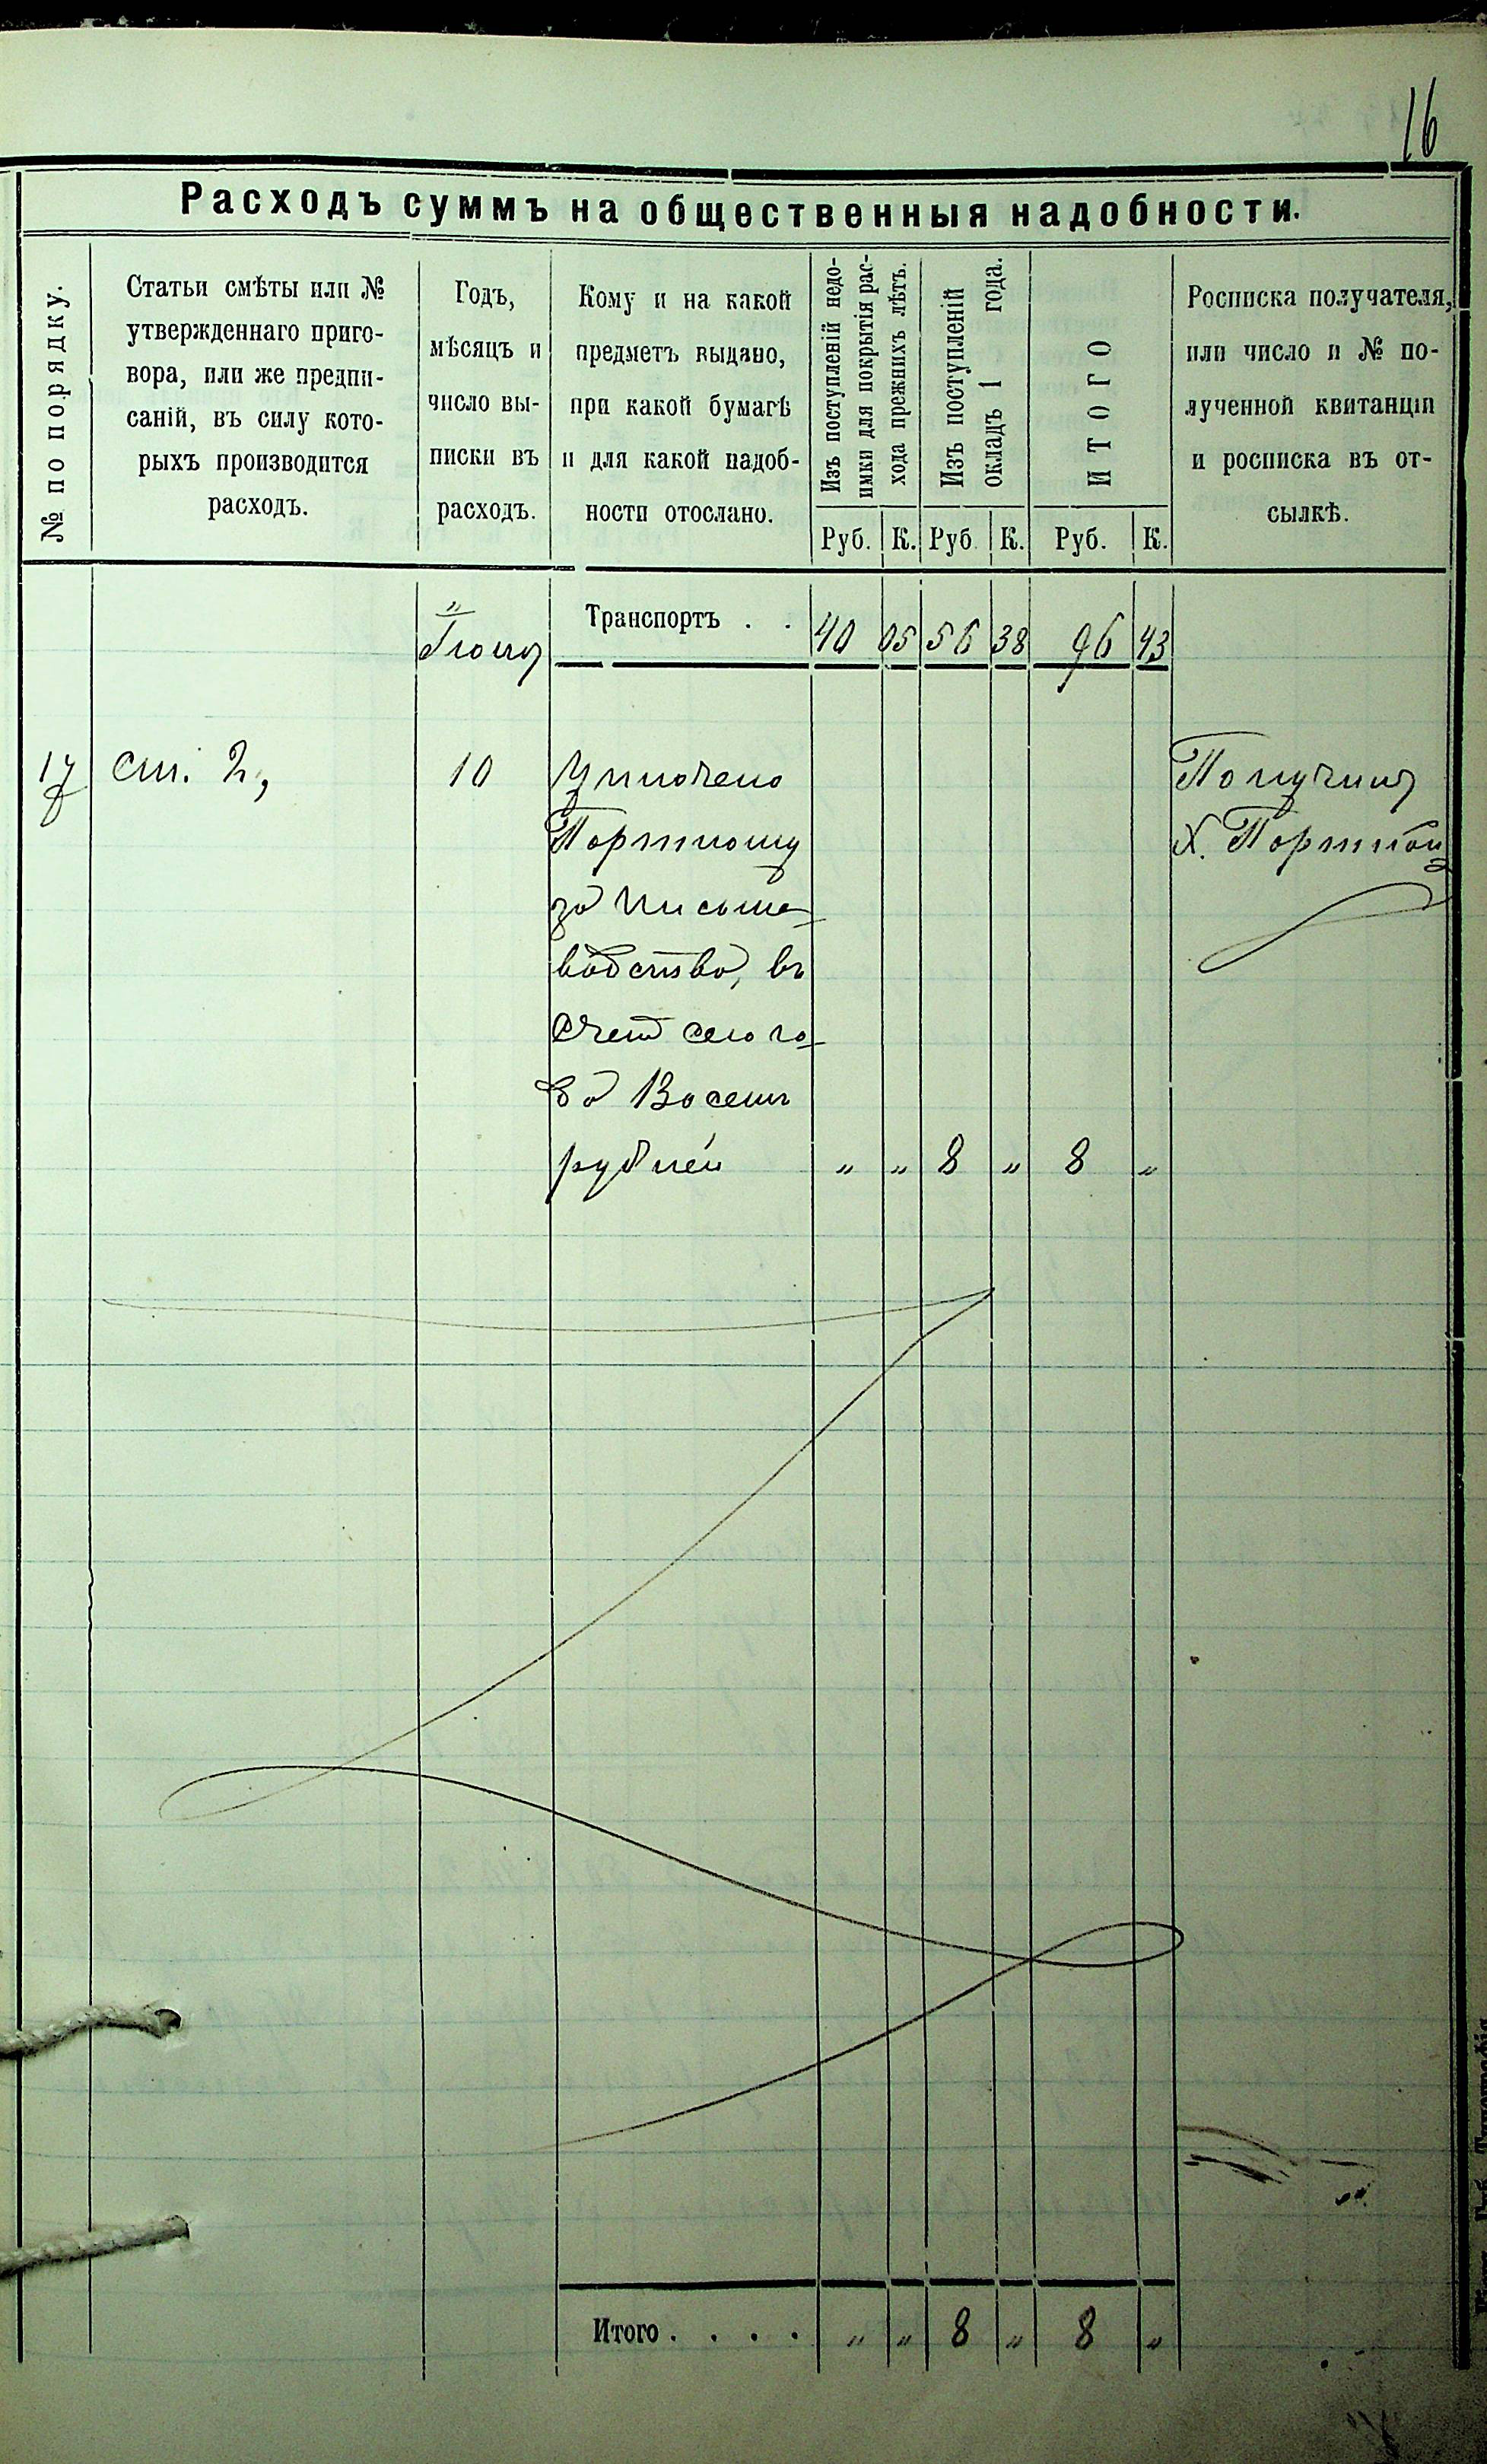 16
Расходъ суммъ на общественныя надобности.
№ по порядку.
Статьи смѣты или №
утвержденнаго приго-
вора, или же предпи-
саній, въ силу кото-
рыхъ производится
расходъ.
Годъ,
мѣсяцъ и
число вы-
писки въ
расходъ.
Кому и на какой
предметъ выдано,
при какой бумагѣ
и для какой надоб-
ности отослано.
Изъ поступленій недо-
имки для покрытія рас-
хода прежнихъ лѣтъ.
Изъ поступленій
окладъ 1 года.
ИТОГО
Росписка получателя,
или число и № по-
лученной квитанціи
и росписка въ от-
сылкѣ.
Руб. К. Руб. К. Руб. К.
"
Іюля
Транспортъ . . 40 05 56 38 96 43
17 ст. 2, 10 Уплочено
Портному
за письмо-
водство, въ
счетъ сего го-
да Восемь
рублей " " 8 " 8 "
Получилъ
Х. Портной
Итого . . . . " " 8 " 8 "